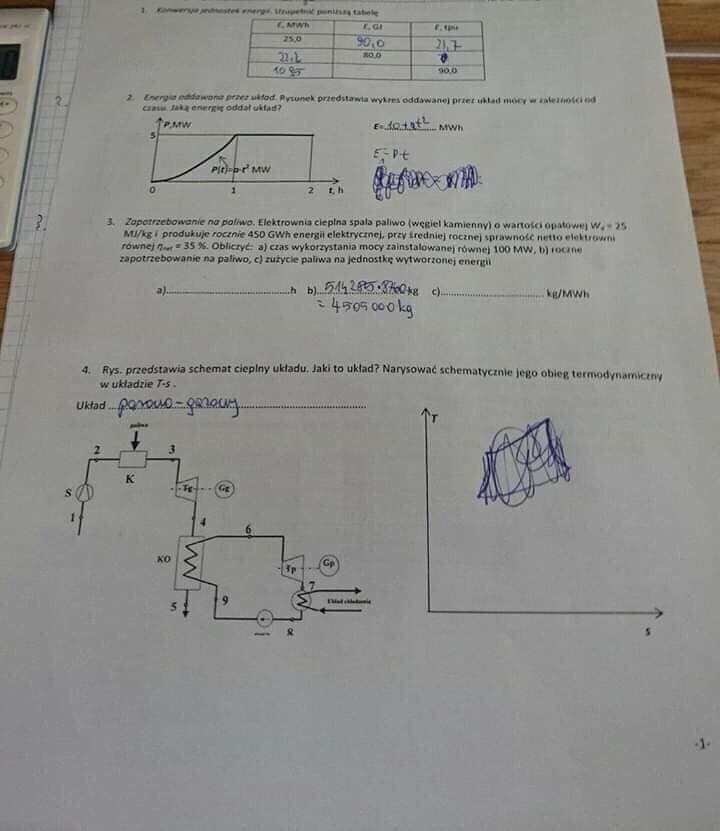 1. Konwersja jednostek energii. Uzupełnić poniższą tabelę
E, MWh E, GJ E, tpu
25,0 90,0 21,7
22,2 80,0
1085 90,0
2. Energia oddawana przez układ. Rysunek przedstawia wykres oddawanej przez układ mocy w zależności od
czasu. Jaką energię oddał układ?
P,MW
5
P(t)=a·t² MW
0 1 2 t, h
E= 10+at² MWh
E=P·t
3. Zapotrzebowanie na paliwo. Elektrownia cieplna spala paliwo (węgiel kamienny) o wartości opałowej Wd = 25
MJ/kg i produkuje rocznie 450 GWh energii elektrycznej, przy średniej rocznej sprawność netto elektrowni
równej ηnet = 35 %. Obliczyć: a) czas wykorzystania mocy zainstalowanej równej 100 MW, b) roczne
zapotrzebowanie na paliwo, c) zużycie paliwa na jednostkę wytworzonej energii
a)..............................h b) 514285·8760 kg c)............................ kg/MWh
= 4505000 kg
4. Rys. przedstawia schemat cieplny układu. Jaki to układ? Narysować schematycznie jego obieg termodynamiczny
w układzie T-s .
Układ ... parowo-gazowy..............................
paliwo
2 3
K
S
Tg Gg
1
4
6
KO
Tp Gp
7
5
9
Układ chłodzenia
8
T
s
-1-